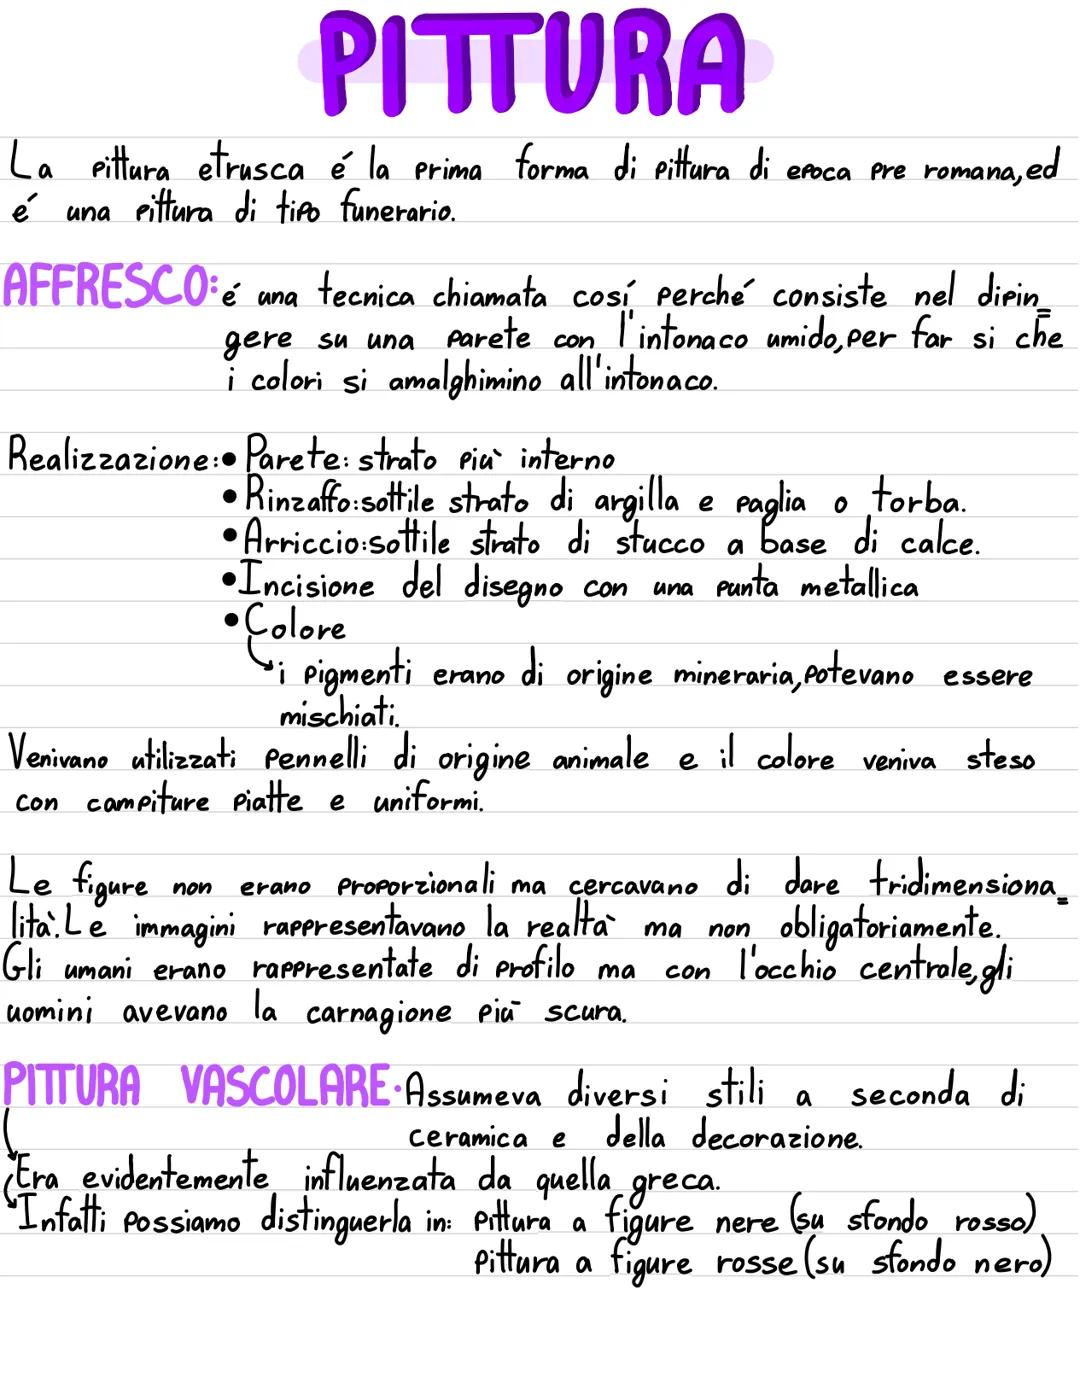 PITTURA
La pittura etrusca é la prima forma di pittura di epoca pre romana, ed
é una pittura di tipo funerario.
AFFRESCO: é una tecnica chiamata cosí perché consiste nel dipin=
gere su una parete con l'intonaco umido, per far si che
i colori si amalghimino all'intonaco.
Realizzazione: • Parete: strato più interno
• Rinzaffo: sottile strato di argilla e paglia o torba.
• Arriccio: sottile strato di stucco a base di calce.
• Incisione del disegno con una punta metallica
• Colore
i pigmenti erano di origine mineraria, potevano essere
mischiati.
Venivano utilizzati pennelli di origine animale e il colore veniva steso
con campiture piatte e uniformi.
Le figure non erano proporzionali ma cercavano di dare tridimensiona=
lità. Le immagini rappresentavano la realtà ma non obligatoriamente.
Gli umani erano rappresentate di profilo ma con l'occhio centrale, gli
uomini avevano la carnagione più scura.
PITTURA VASCOLARE • Assumeva diversi stili a seconda di
ceramica e della decorazione.
Era evidentemente influenzata da quella greca.
Infatti possiamo distinguerla in: pittura a figure nere (su sfondo rosso)
pittura a figure rosse (su sfondo nero)